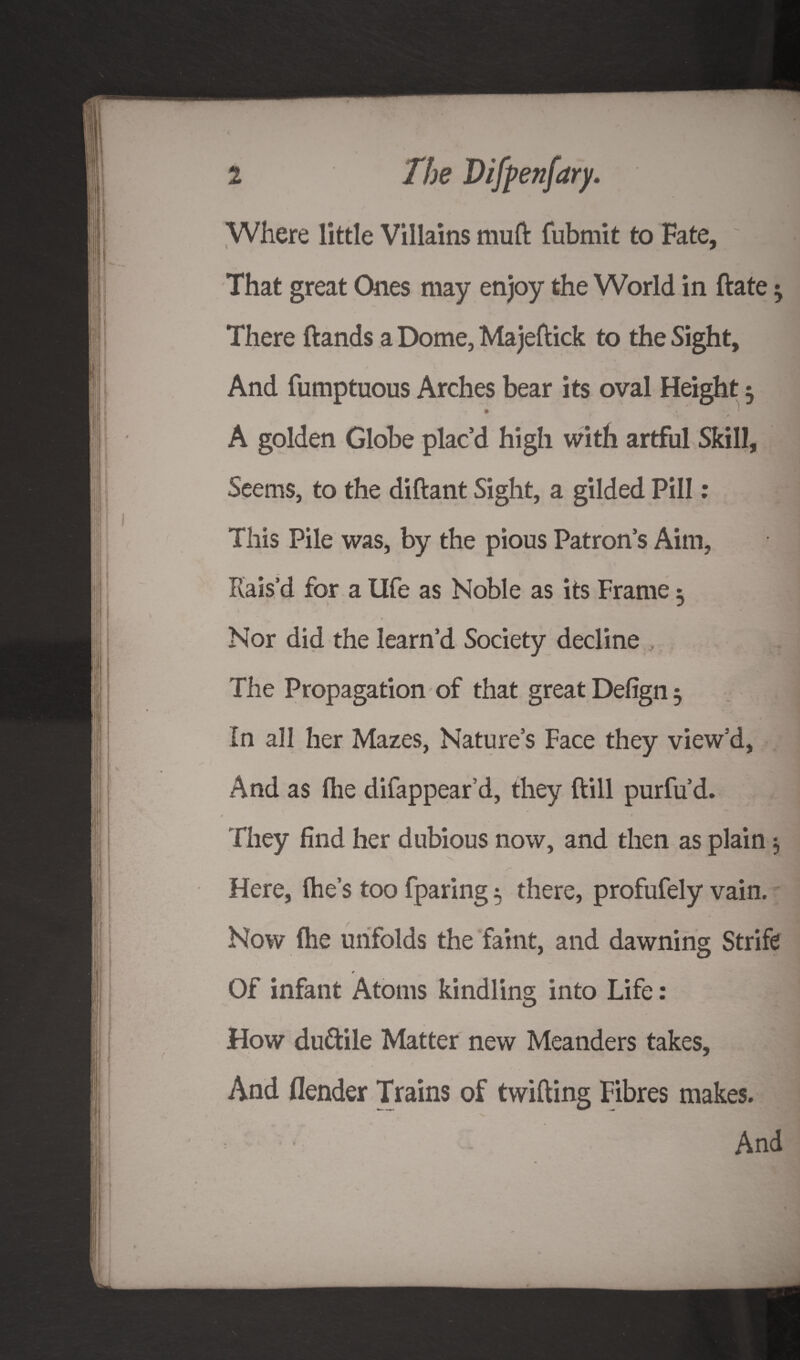 2 The Diſpenſary.
Where little Villains muſt ſubmit to Fate,
That great Ones may enjoy the World in ſtate;
There ſtands a Dome, Majeſtick to the Sight,
And ſumptuous Arches bear its oval Height;
A golden Globe plac'd high with artful Skill,
Seems, to the diſtant Sight, a gilded Pill:
This Pile was, by the pious Patron's Aim,
Rais'd for a Uſe as Noble as its Frame;
Nor did the learn'd Society decline
The Propagation of that great Deſign;
In all her Mazes, Nature's Face they view'd,
And as ſhe diſappear'd, they ſtill purſu'd.
They find her dubious now, and then as plain;
Here, ſhe's too ſparing; there, profuſely vain.
Now ſhe unfolds the faint, and dawning Strife
Of infant Atoms kindling into Life:
How ductile Matter new Meanders takes,
And ſlender Trains of twiſting Fibres makes.
And